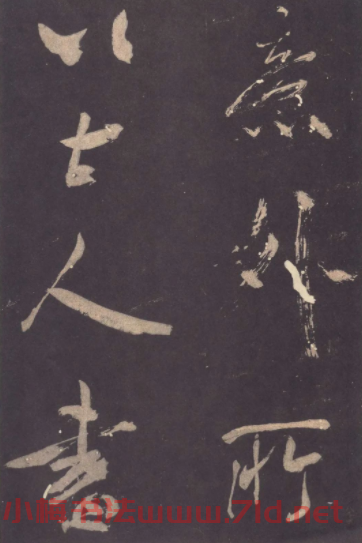 意外所
以古人書
小楷书法www.7id.net